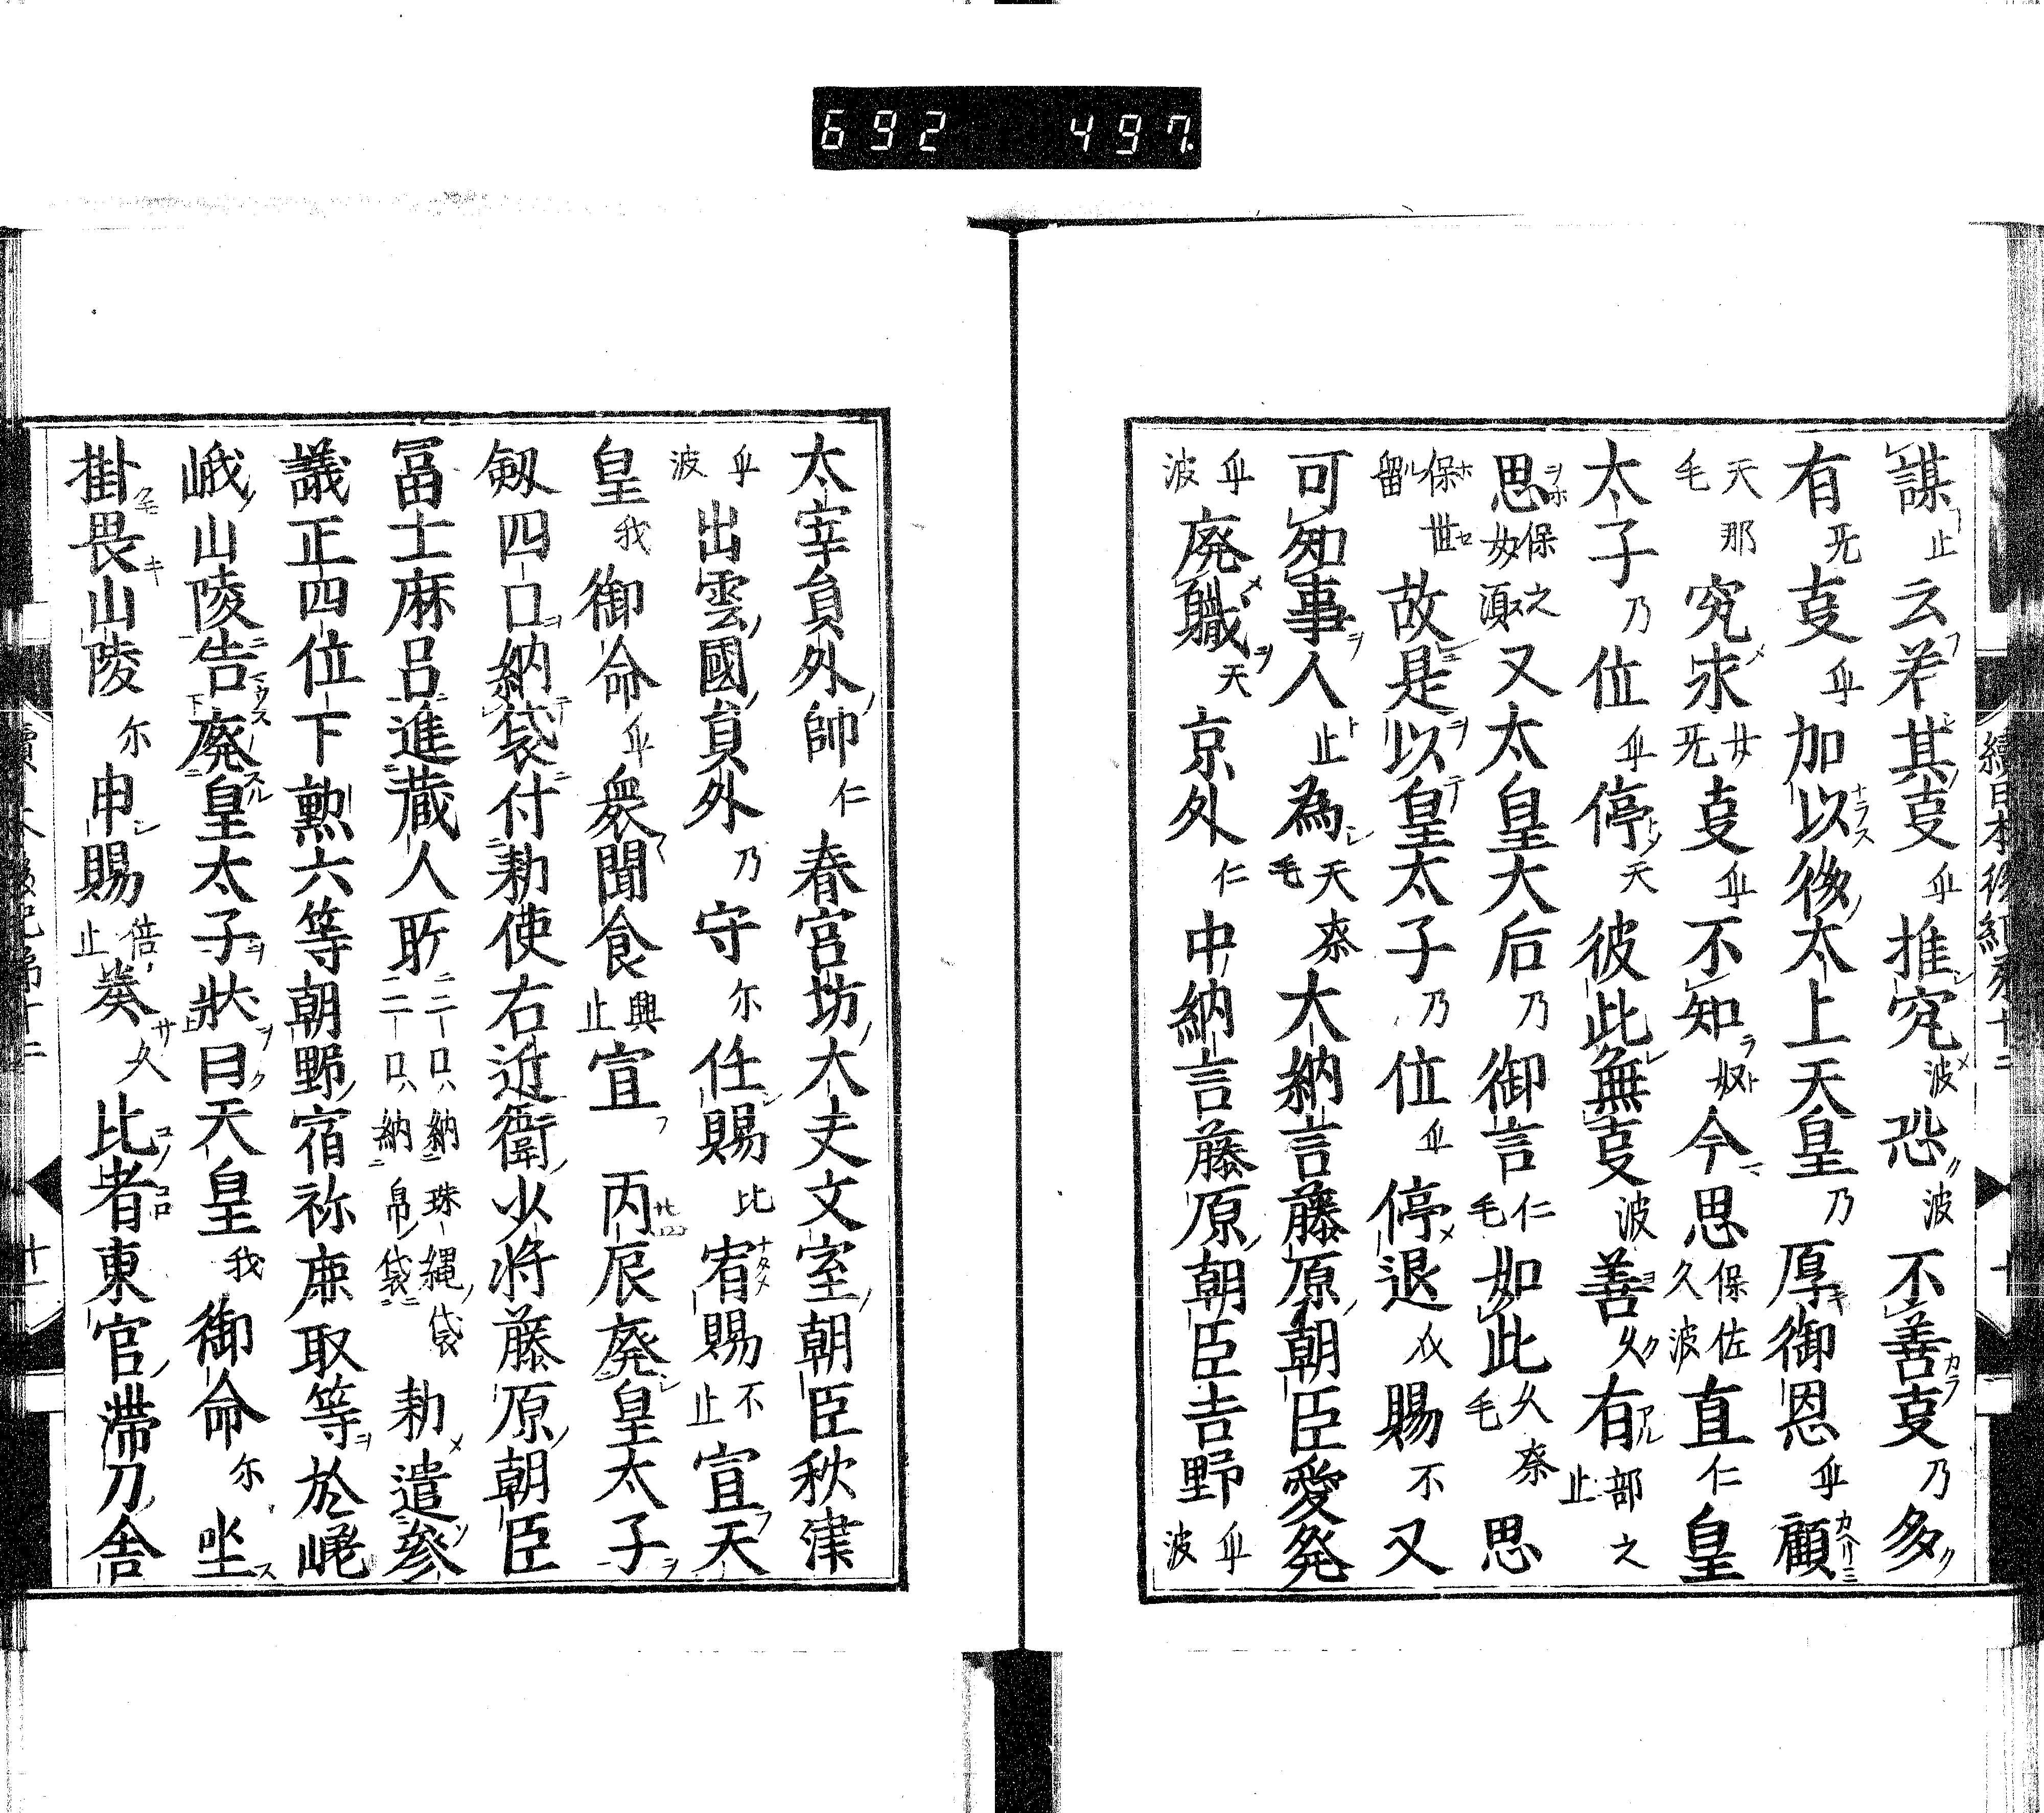 692 497
謀止云布其㕝乎推究波恐波不善㕝乃多
有旡㕝乎加以後太上天皇乃厚御恩乎顧
天毛那究求女旡㕝乎不知奴今思保佐久波直仁皇
太子乃位乎停天彼此無㕝波善久有部之止
思保之女須又太皇大后乃御言仁毛如此久毛奈思
保世留故是以皇太子乃位乎停退介賜不又
可知事人止為天毛奈大納言藤原朝臣愛発
乎波廃職天京外仁中納言藤原朝臣吉野乎波
太宰貟外帥仁春宮坊大夫文室朝臣秋津
乎波出雲國貟外乃守尓任賜比宥賜不止宣天
皇我御命乎衆聞食與止宣丙辰廃皇太子
剱四口納袋付勅使右近衛少将藤原朝臣
冨士麻呂進蔵人所二口納珠縄袋二口納帛袋勅遣参
議正四位下勲六等朝野宿祢鹿取等於嵯
峨山陵告廃皇太子状曰天皇我御命尓坐
掛畏山陵尓申賜倍止奏久比者東官帯刀舎
續日本後紀卷十二